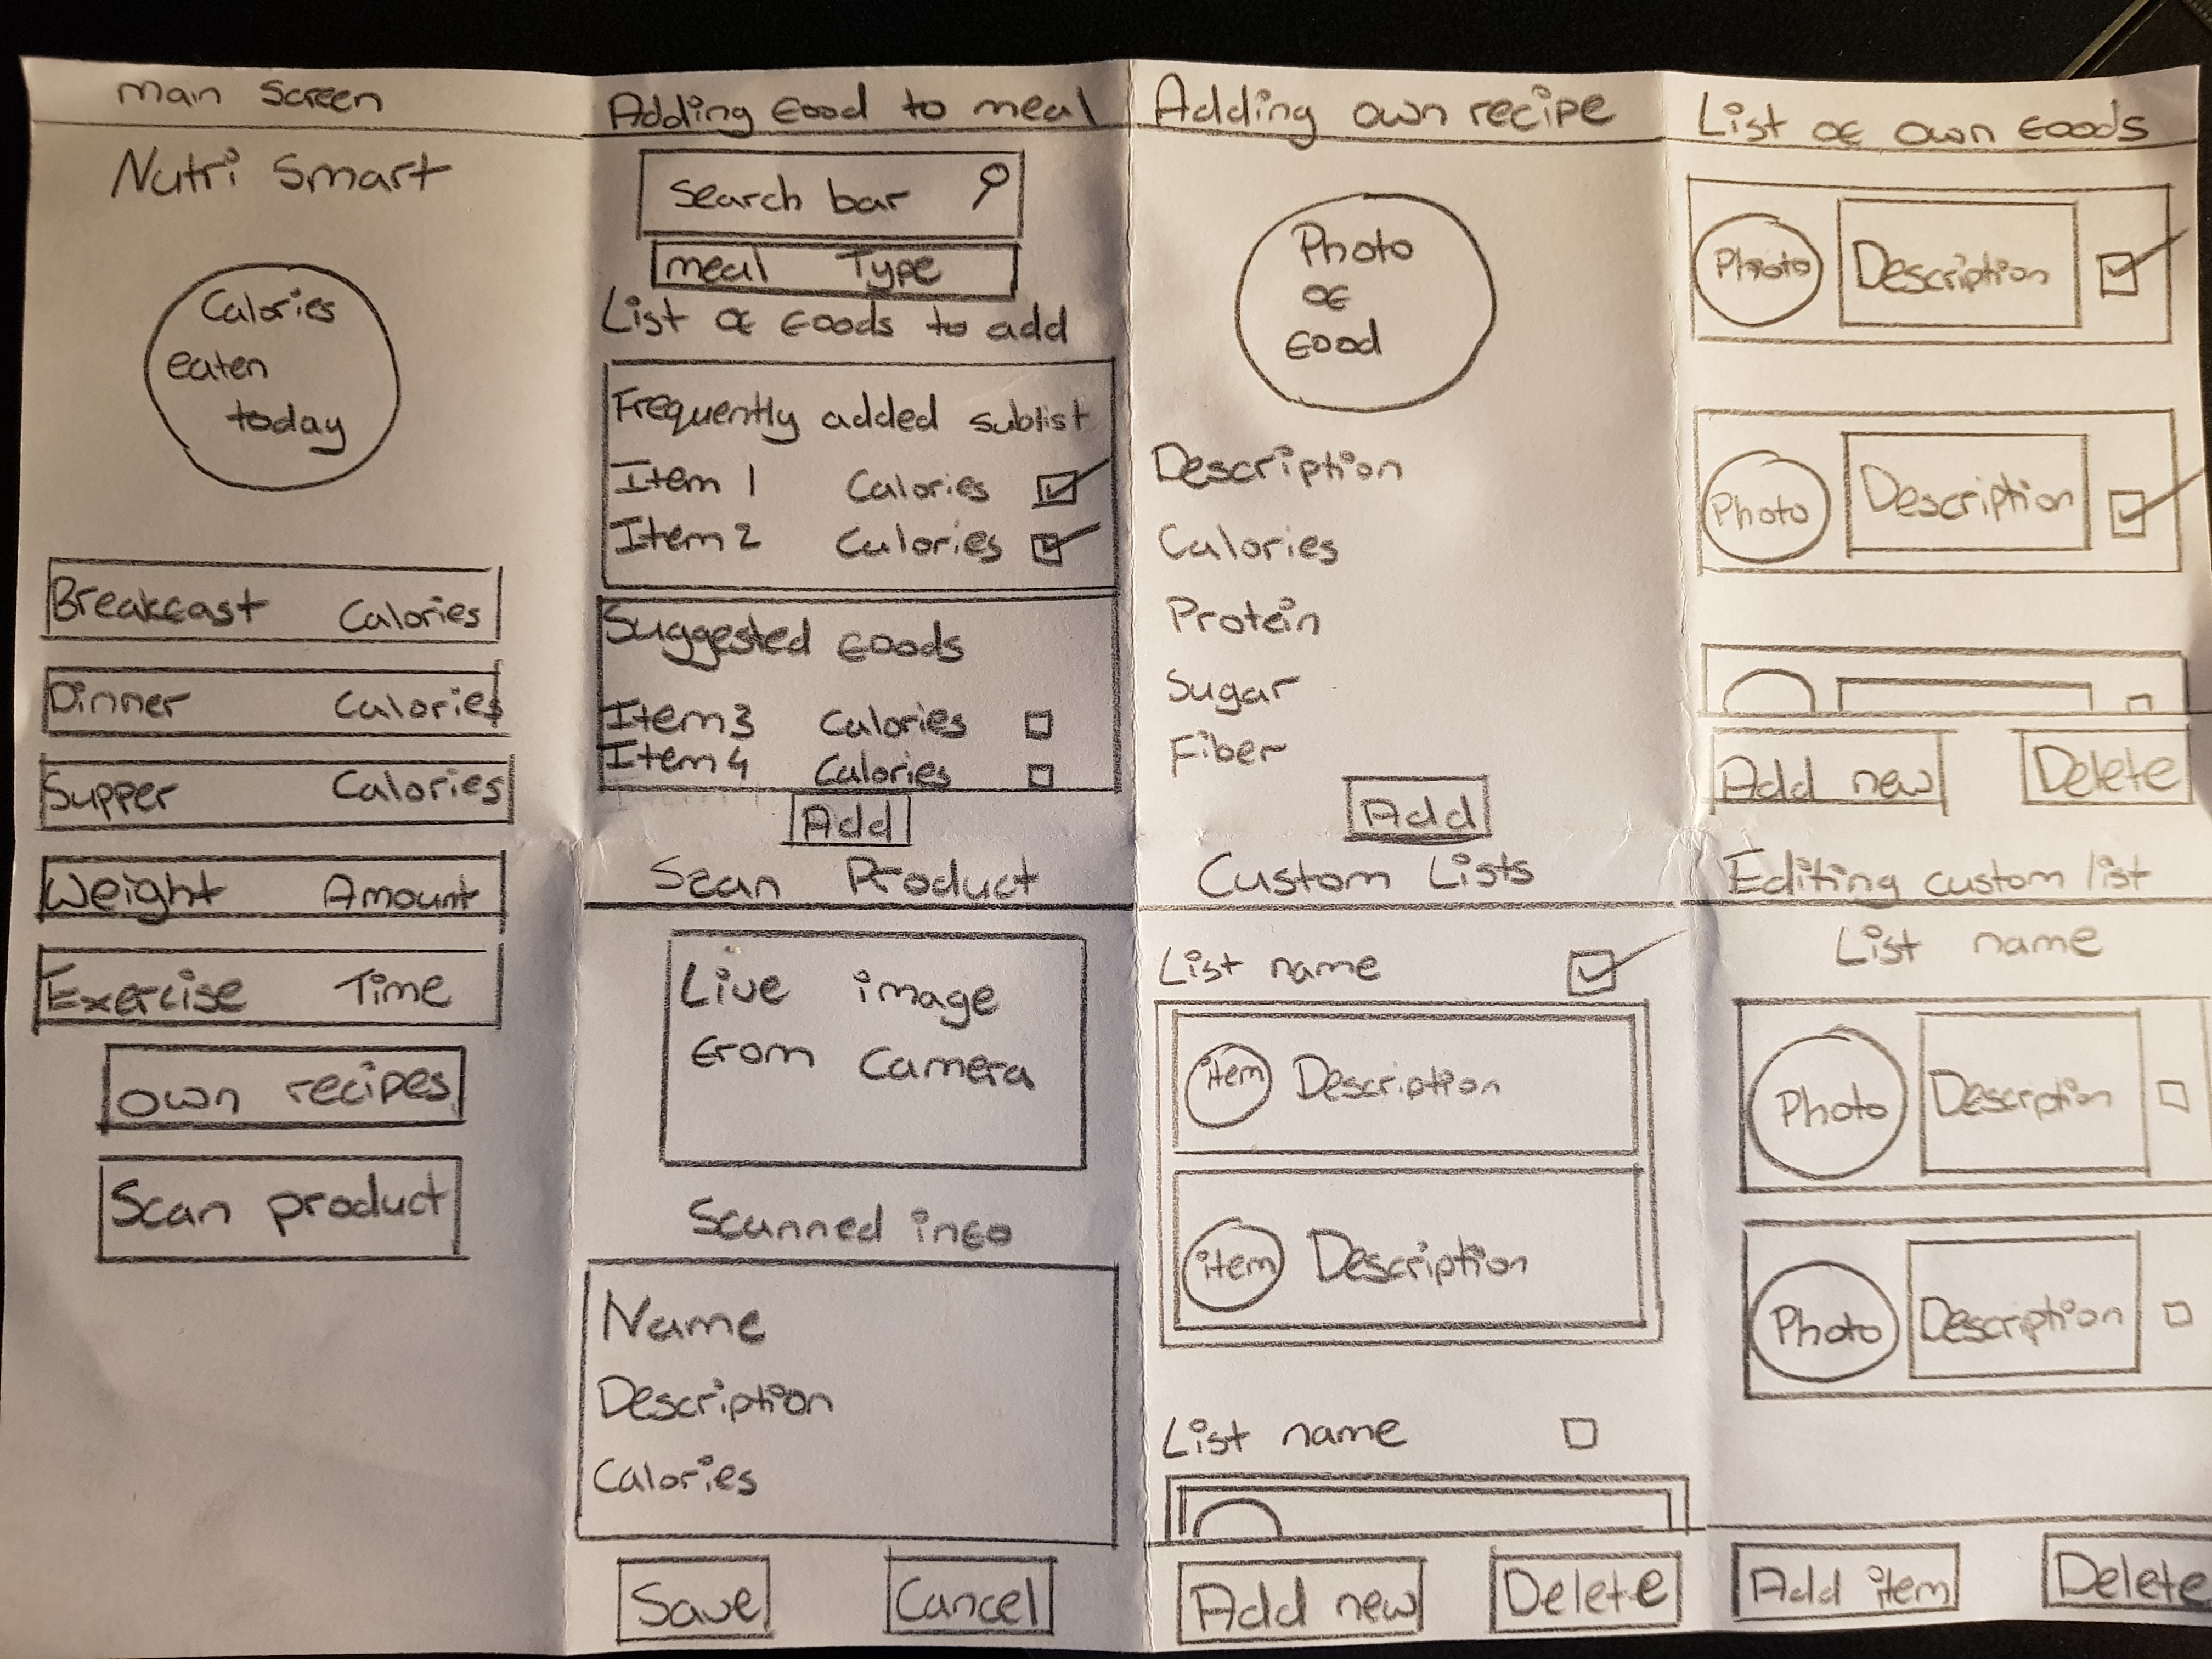 main Screen
Nutri Smart
Calories
eaten
today
Breakfast Calories
Dinner Calories
Supper Calories
Weight Amount
Exercise Time
own recipes
Scan product
Adding food to meal
Search bar
meal Type
List of foods to add
Frequently added sublist
Item 1 Calories
Item 2 Calories
Suggested foods
Item 3 Calories
Item 4 Calories
Add
Scan Product
Live image
from camera
Scanned info
Name
Description
Calories
Save Cancel
Adding own recipe
Photo
of
food
Description
Calories
Protein
Sugar
Fiber
Add
Custom Lists
List name
item Description
item Description
List name
Add new Delete
List of own foods
Photo Description
Photo Description
Add new Delete
Editing custom list
List name
Photo Description
Photo Description
Add item Delete